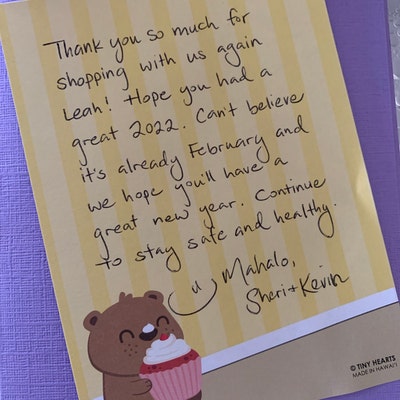 Thank you so much for
shopping with us again
Leah! Hope you had a
great 2022. Can't believe
it's already February and
we hope you'll have a
great new year. Continue
to stay safe and healthy.
Mahalo,
Sheri + Kevin
© TINY HEARTS
MADE IN HAWAI'I